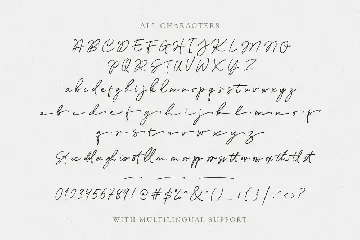 ALL CHARACTERS
ABCDEFGHIJKLMNO
PQRSTUVWXYZ
abcdefghijklmnopqrstuvwxyz
a b c d e f g h i j k l m n o p
q r s t u v w x y z
0123456789!@#$%^&*()_+{}/:<>?
WITH MULTILINGUAL SUPPORT